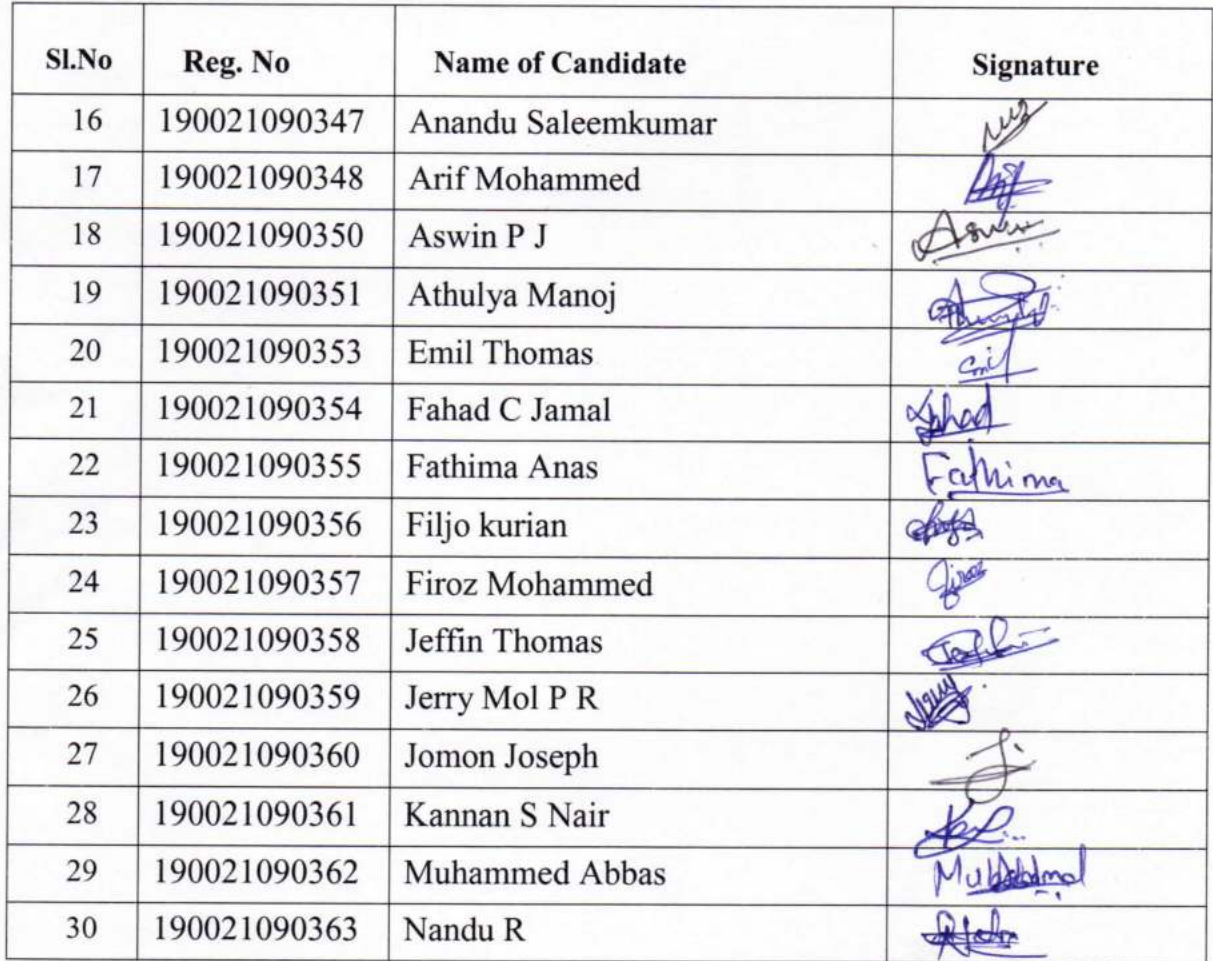 Sl.No Reg. No Name of Candidate Signature
16 190021090347 Anandu Saleemkumar
17 190021090348 Arif Mohammed
18 190021090350 Aswin P J Aswin
19 190021090351 Athulya Manoj
20 190021090353 Emil Thomas Emil
21 190021090354 Fahad C Jamal Fahad
22 190021090355 Fathima Anas Fathima
23 190021090356 Filjo kurian
24 190021090357 Firoz Mohammed Firoz
25 190021090358 Jeffin Thomas
26 190021090359 Jerry Mol P R
27 190021090360 Jomon Joseph
28 190021090361 Kannan S Nair
29 190021090362 Muhammed Abbas
30 190021090363 Nandu R